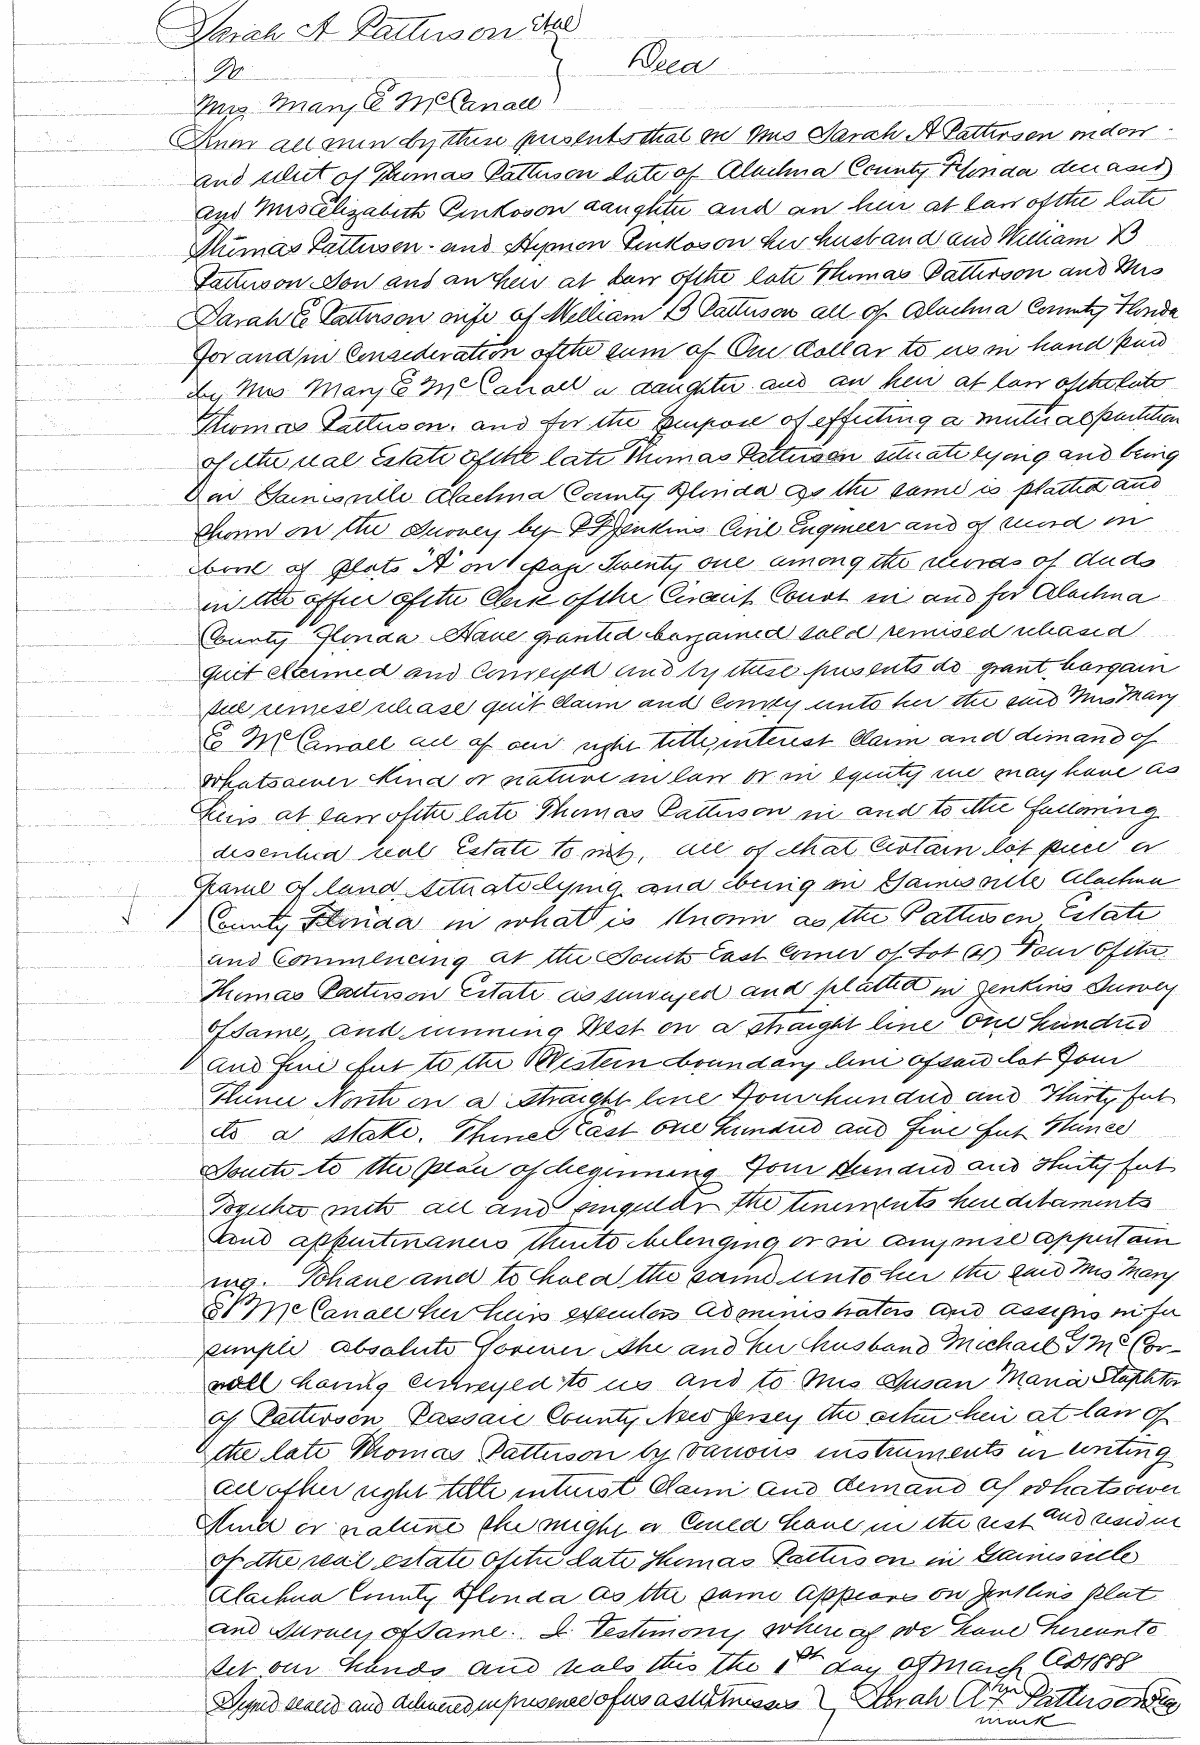 Sarah A Patterson etal
To
Deed
Mrs Mary E McCanall
Know all men by these presents that we Mrs Sarah A Patterson widow
and relict of Thomas Patterson late of Alachua County Florida deceased
and Mrs Elizabeth Pinkoson daughter and an heir at law of the late
Thomas Patterson and Hymon Pinkoson her husband and William B
Patterson Son and an heir at law of the late Thomas Patterson and Mrs
Sarah E Patterson wife of William B Patterson all of Alachua County Florida
for and in Consideration of the sum of One dollar to us in hand paid
by Mrs Mary E McCanall a daughter and an heir at law of the late
Thomas Patterson. and for the purpose of effecting a mutual partition
of the real Estate of the late Thomas Patterson situate lying and being
in Gainesville Alachua County Florida as the same is platted and
shown on the Survey by Jenkins Civil Engineer and of record in
book of plats "A" on page Twenty one among the records of deeds
in the office of the Clerk of the Circuit Court in and for Alachua
County Florida Have granted bargained sold remised released
quit claimed and Conveyed and by these presents do grant bargain
sell remise release quit Claim and Convey unto her the said Mrs Mary
E McCanall all of our right title, interest Claim and demand of
whatsoever Kind or nature in law or in equity we may have as
heirs at law of the late Thomas Patterson in and to the following
described real Estate to wit, all of that Certain lot piece or
parcel of land situate lying and being in Gainesville Alachua
County Florida in what is Known as the Patterson Estate
and Commencing at the South East Corner of Lot (4) Four of the
Thomas Patterson Estate as surveyed and platted in Jenkins Survey
of same, and running West on a straight line One hundred
and five feet to the Western boundary line of said lot Four
Thence North on a straight line Four hundred and Thirty feet
to a stake. Thence East one hundred and five feet Thence
South to the place of beginning Four Hundred and thirty feet
Together with all and singular the tenements hereditaments
and appurtenances thereto belonging or in anywise appertain
ing. To have and to hold the same unto her the said Mrs Mary
E McCanall her heirs executors administrators and assigns in fee
simple absolute forever she and her husband Michael G McCor-
nall having conveyed to us and to Mrs Susan Maria Stephton
of Patterson Passaic County New Jersey the other heir at law of
the late Thomas Patterson by various instruments in writing
all other right title interest Claim and demand of whatsoever
Kind or nature she might or Could have in the rest and residue
of the real estate of the late Thomas Patterson in Gainesville
Alachua County Florida as the same appears on Jenkins plat
and Survey of Same. In Testimony whereof we have hereunto
set our hands and seals this the 1st day of March AD 1888
Signed sealed and delivered in presence of us as witnesses } Sarah A her x Patterson Seal
mark